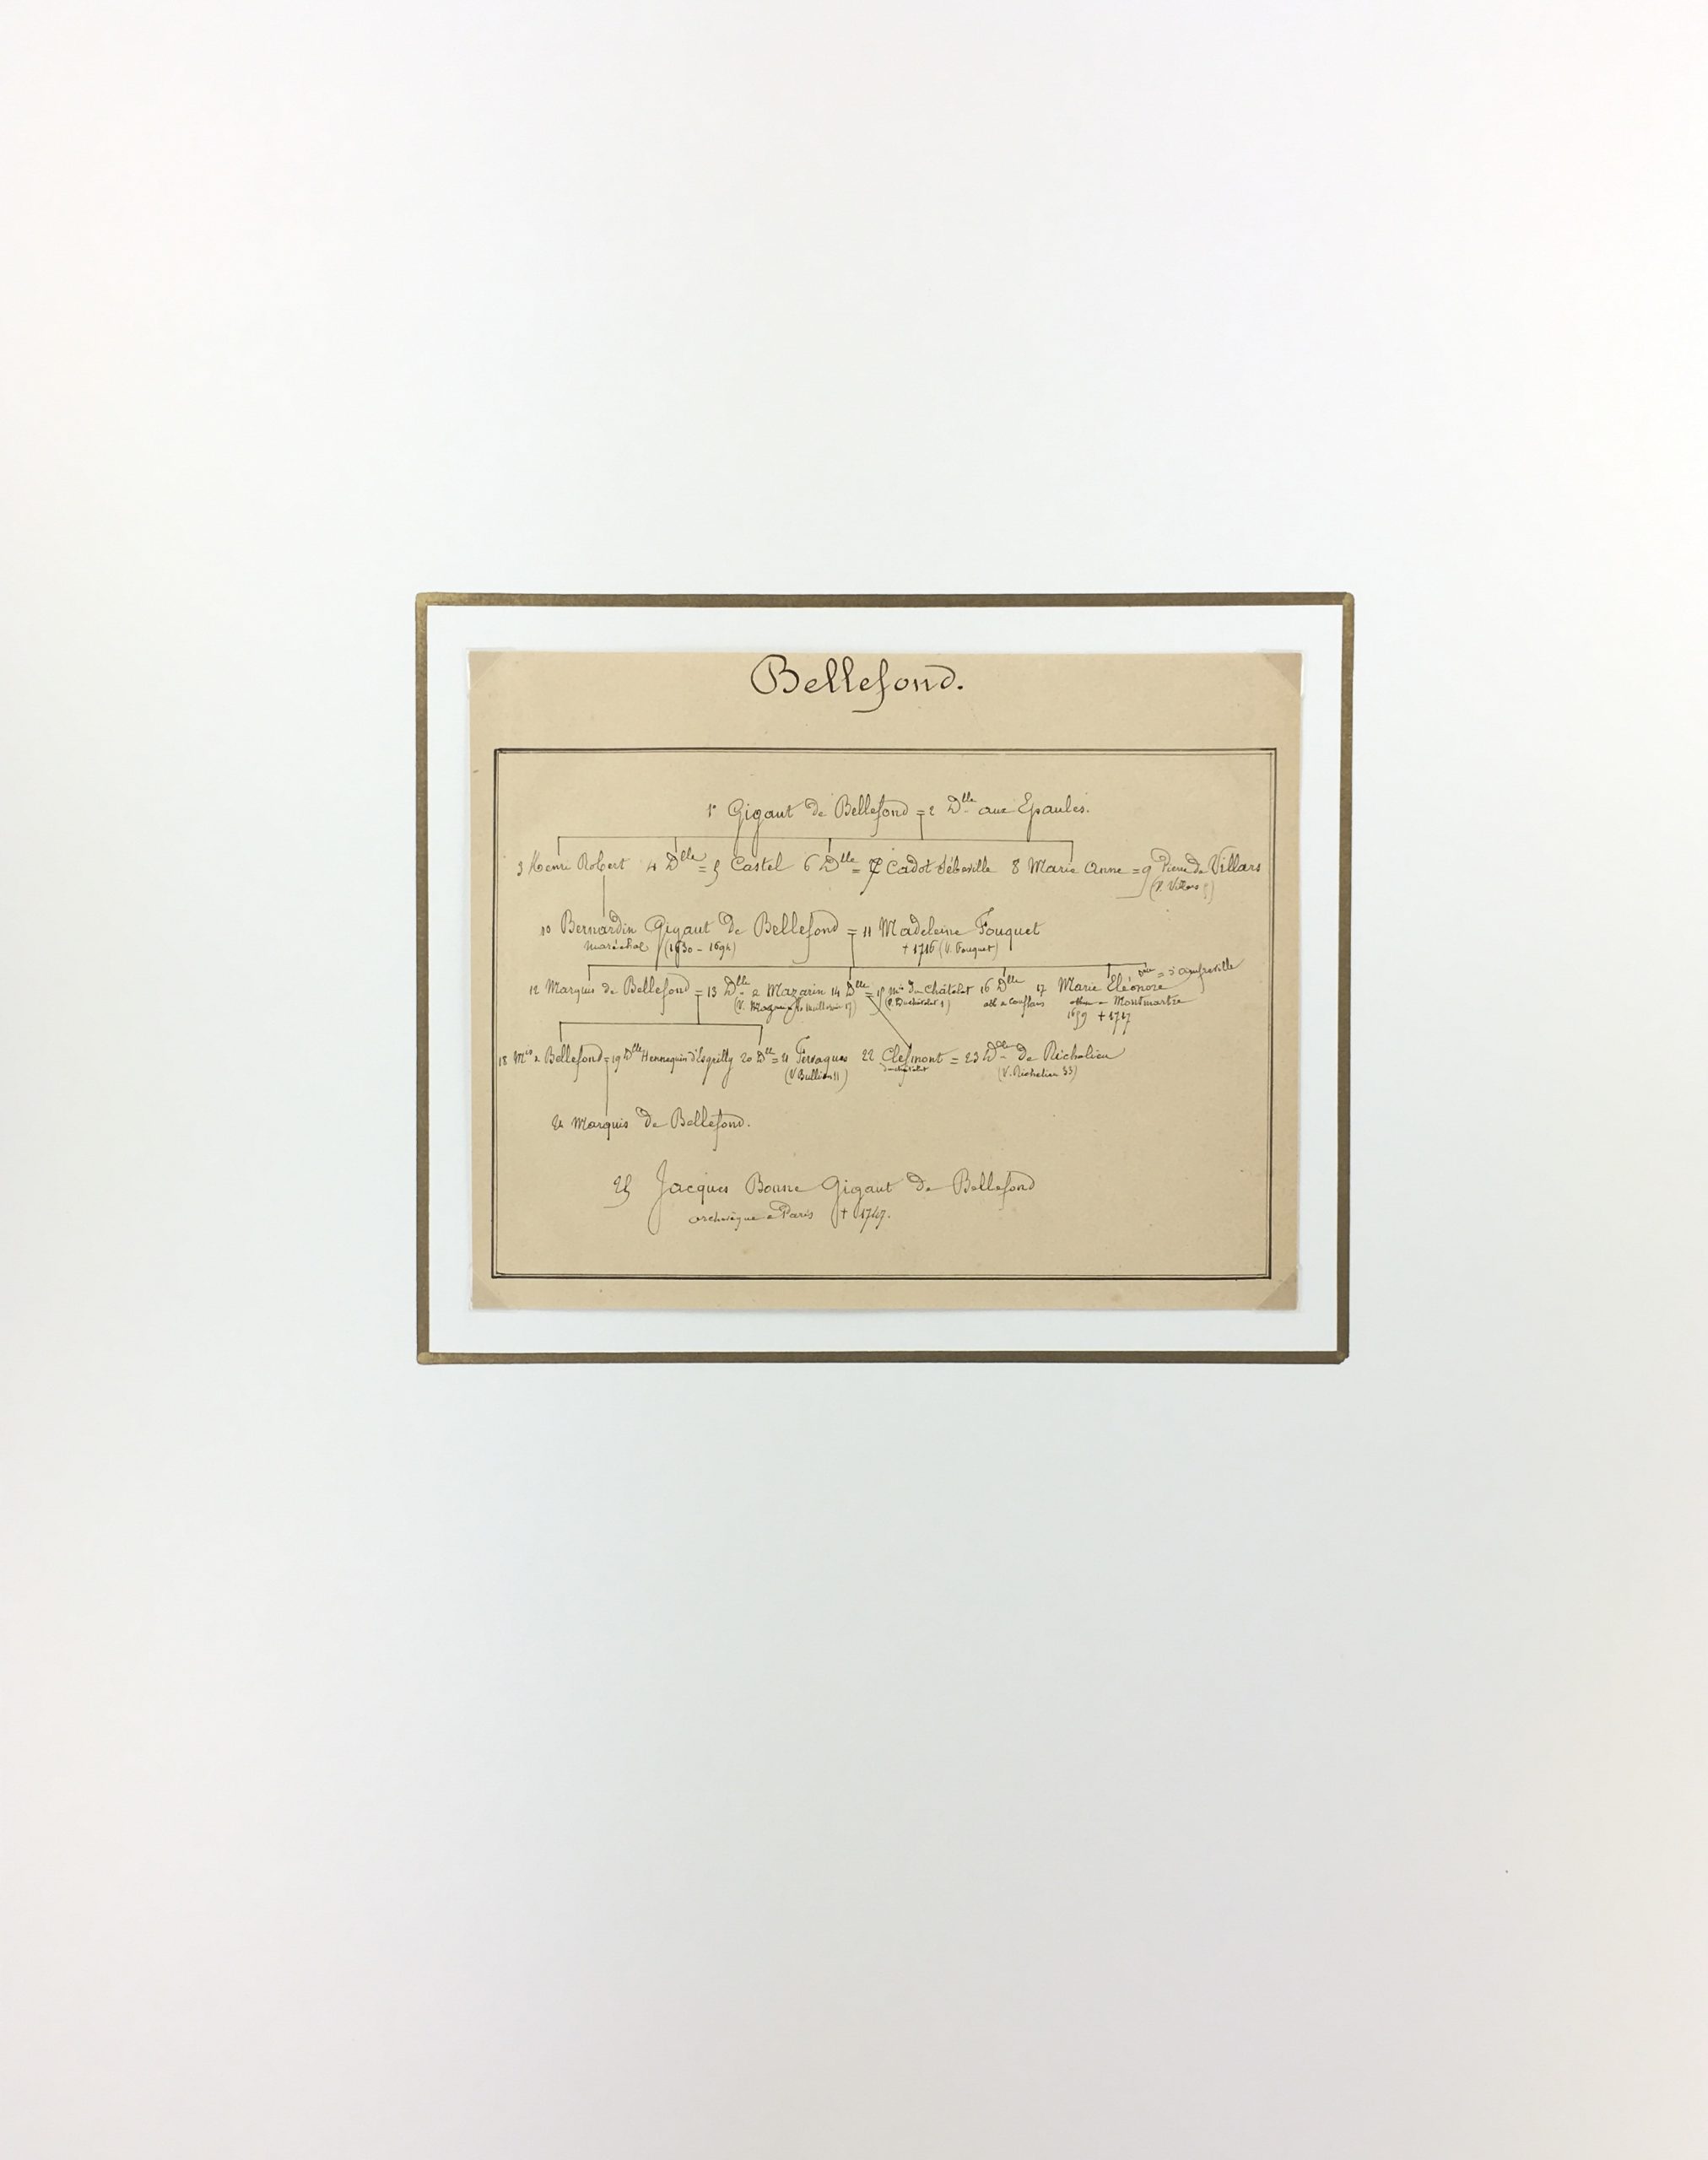 Bellefond.
1° Gigaut de Bellefond = 2 Dlle aux Epaules.
3 Henri Robert 4 Dlle = 5 Castel 6 Dlle = 7 Cadot Sébeville 8 Marie Anne = 9 Pierre de Villars
(V. Villars 5)
10 Bernardin Gigaut de Bellefond = 11 Madeleine Fouquet
maréchal (1630 - 1694) + 1716 (V. Fouquet)
12 Marquis de Bellefond = 13 Dlle de Mazarin 14 Dlle = 15 Mis du Châtelet 16 Dlle 17 Marie Eléonore
abb de Conflans abbesse de Montmartre
1659 + 1717
18 Mis de Bellefond = 19 Dlle Hennequin d'Ecquilly 20 Dlle = 21 Fervaques 22 Clefmont = 23 Dlle de Richelieu
(V. Bullion 11) duchatelet (V. Richelieu 33)
24 Marquis de Bellefond.
25 Jacques Bonne Gigaut de Bellefond
archevêque de Paris + 1747.